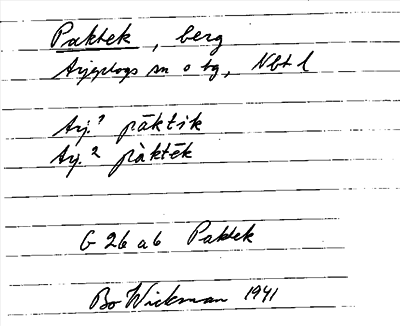 Paktek, berg
Arjeplogs sn o tg, Nbt l
Arj.¹ pāktik
Arj.² pàktēk
G 26 a b Paktek
Bo Wickman 1941